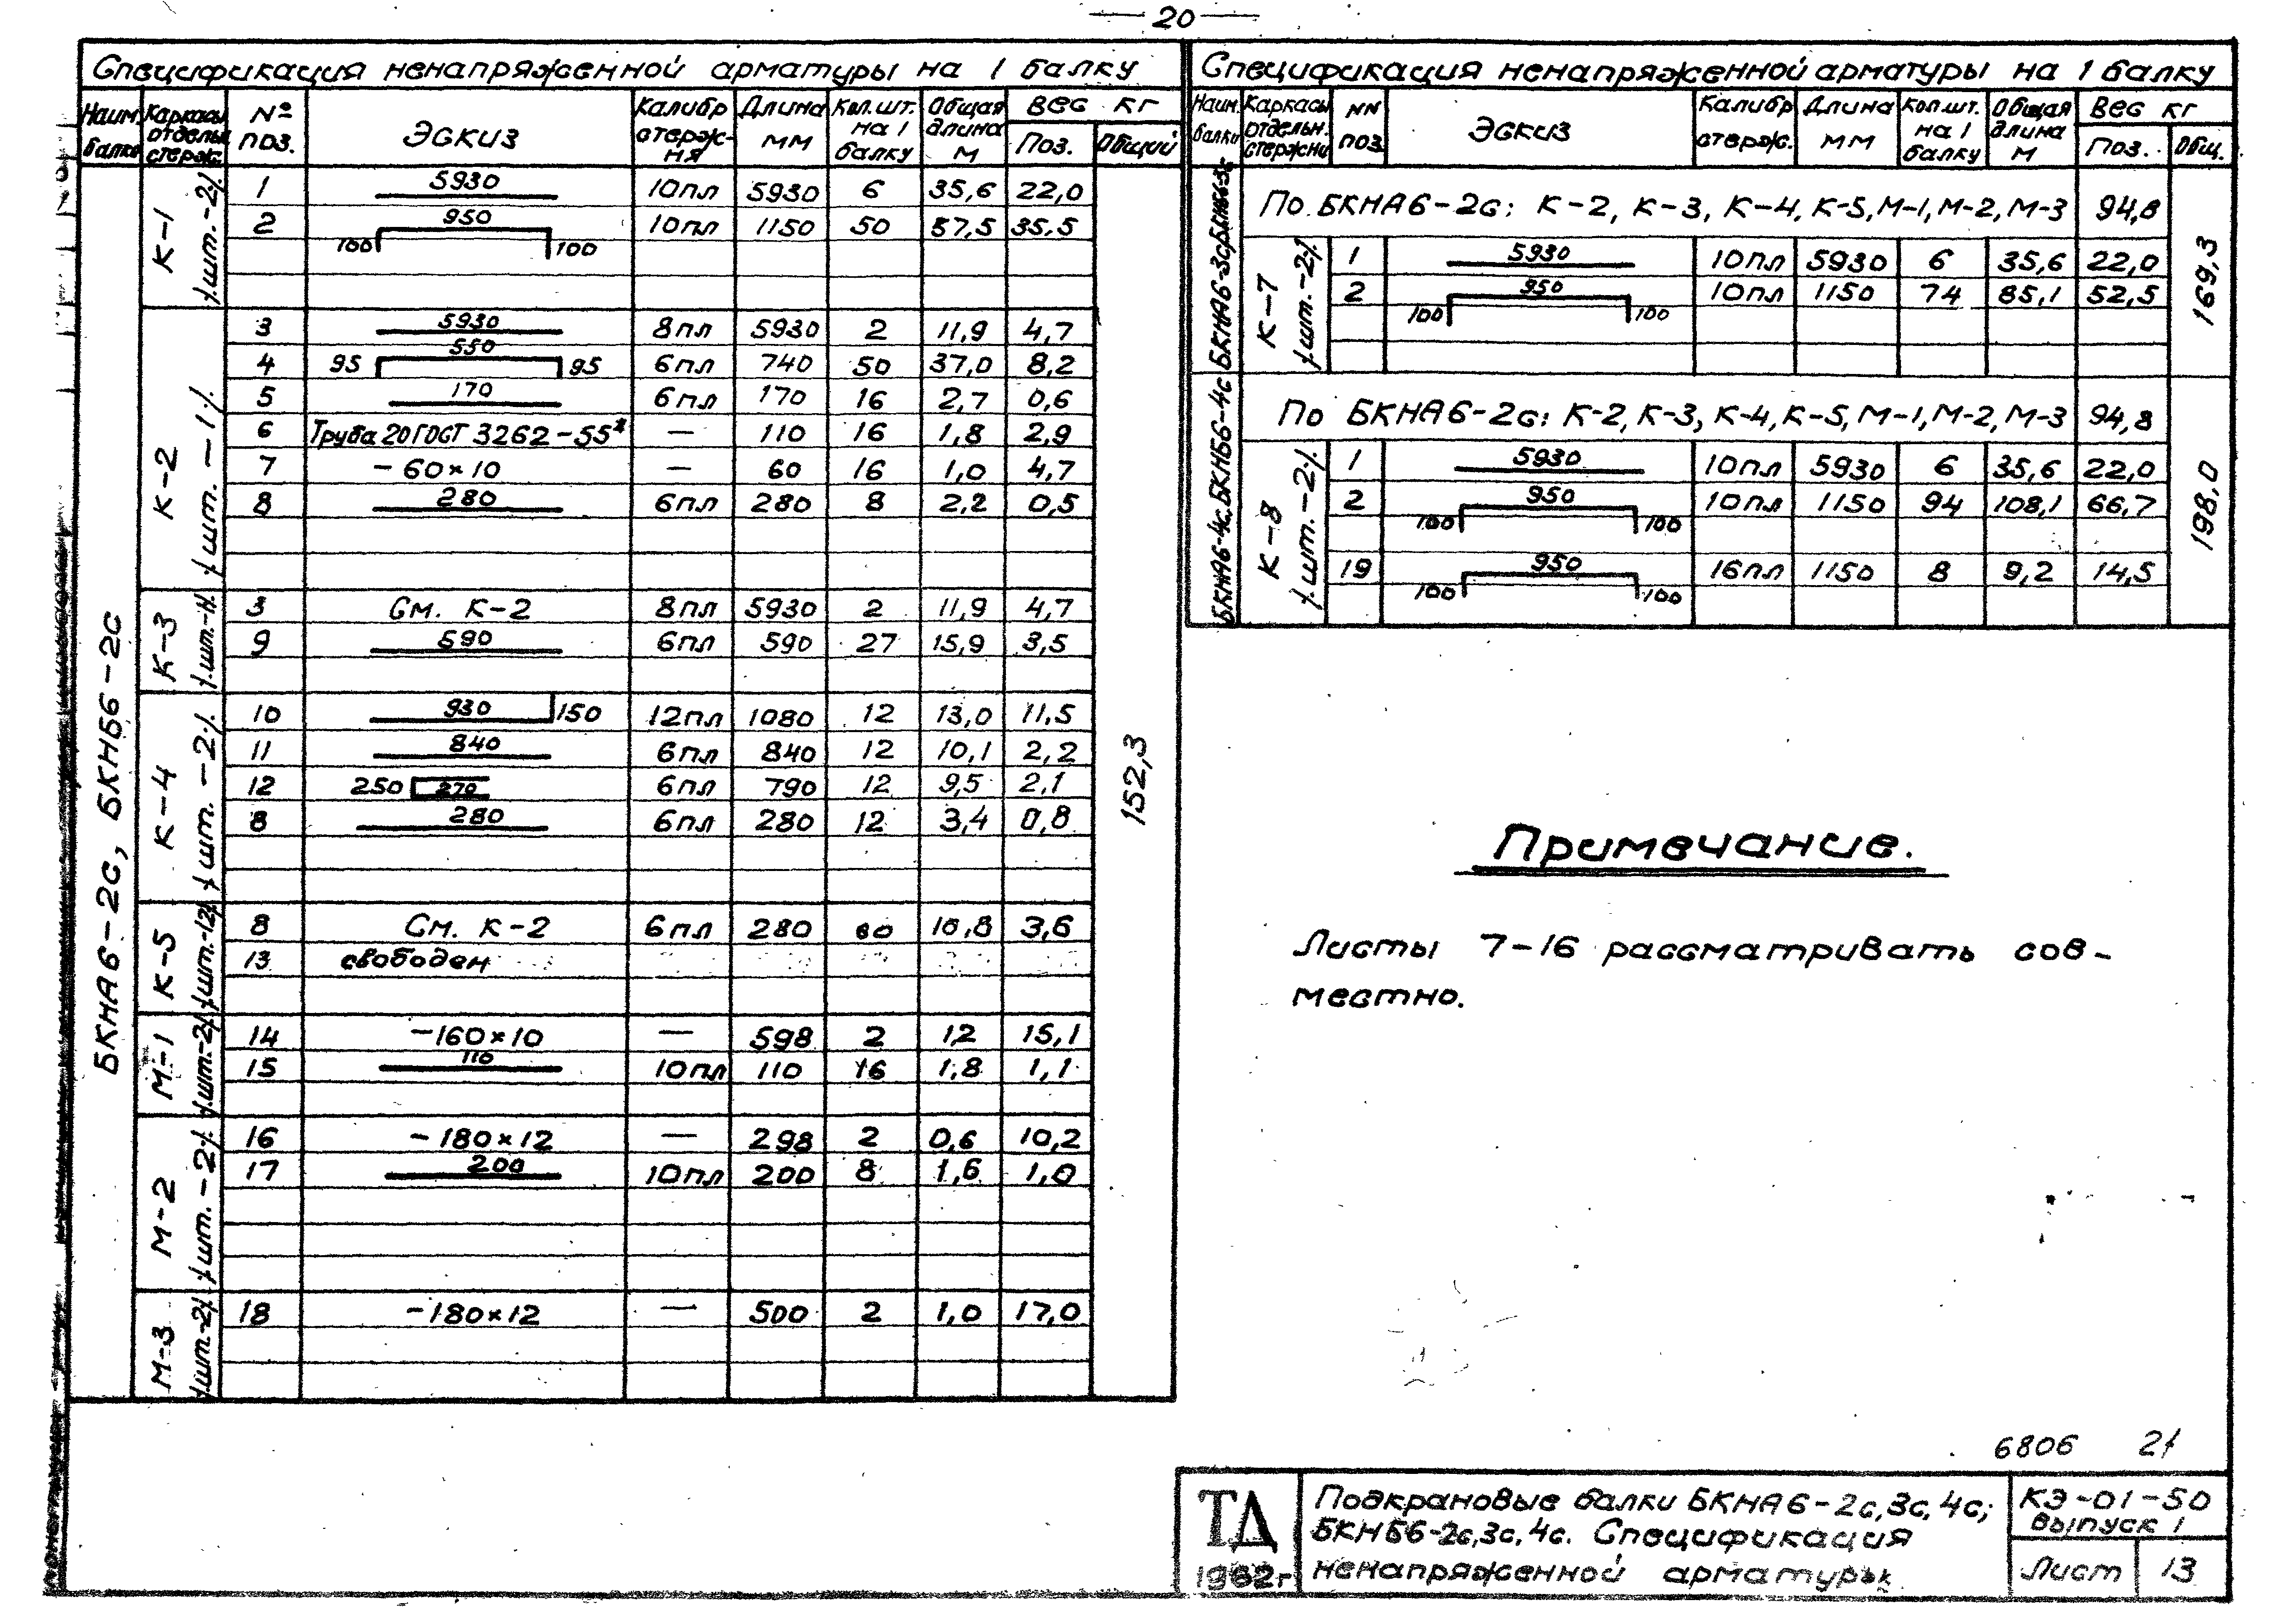 — 20 —
Спецификация ненапряженной арматуры на 1 балку
Наим. балки Каркасы отдельн стерж. № поз. Эскиз Калибр стержня Длина мм Кол. шт. на 1 балку Общая длина м Вес кг Поз. Общий
БКНА6-2с, БКНБ6-2с
К-1 /шт.-2/
1 5930 10пл 5930 6 35,6 22,0
2 950 100 100 10пл 1150 50 57,5 35,5
К-2 /шт.-1/
3 5930 8пл 5930 2 11,9 4,7
4 95 550 95 6пл 740 50 37,0 8,2
5 170 6пл 170 16 2,7 0,6
6 Труба 20 ГОСТ 3262-55* — 110 16 1,8 2,9
7 -60×10 — 60 16 1,0 4,7
8 280 6пл 280 8 2,2 0,5
К-3
3 См. К-2 8пл 5930 2 11,9 4,7
9 590 6пл 590 27 15,9 3,5
К-4 /шт.-2/
10 930 150 12пл 1080 12 13,0 11,5
11 840 6пл 840 12 10,1 2,2
12 250 270 6пл 790 12 9,5 2,1
8 280 6пл 280 12 3,4 0,8
К-5 /шт.-12/
8 См. К-2 6пл 280 60 16,8 3,6
13 свободен
М-1 /шт.-2/
14 -160×10 — 598 2 1,2 15,1
15 110 10пл 110 16 1,8 1,1
М-2 /шт.-2/
16 -180×12 — 298 2 0,6 10,2
17 200 10пл 200 8 1,6 1,0
М-3 /шт.-2/
18 -180×12 — 500 2 1,0 17,0
152,3
Спецификация ненапряженной арматуры на 1 балку
Наим. балки Каркасы отдельн. стержни NN поз. Эскиз Калибр стерж. Длина мм Кол. шт. на 1 балку Общая длина м Вес кг Поз. Общ.
БКНА6-3с, БКНБ6-3с
По БКНА6-2с: К-2, К-3, К-4, К-5, М-1, М-2, М-3 94,8
К-7 /шт.-2/
1 5930 10пл 5930 6 35,6 22,0
2 950 100 100 10пл 1150 74 85,1 52,5
169,3
БКНА6-4с, БКНБ6-4с
По БКНА6-2с: К-2, К-3, К-4, К-5, М-1, М-2, М-3 94,8
К-8 /шт.-2/
1 5930 10пл 5930 6 35,6 22,0
2 950 100 100 10пл 1150 94 108,1 66,7
19 950 100 100 16пл 1150 8 9,2 14,5
198,0
Примечание.
Листы 7-16 рассматривать сов-
местно.
6806 21
ТД
1962г
Подкрановые балки БКНА6-2с,3с,4с;
БКНБ6-2с,3с,4с. Спецификация
ненапряженной арматуры.
КЭ-01-50
выпуск 1
Лист 13